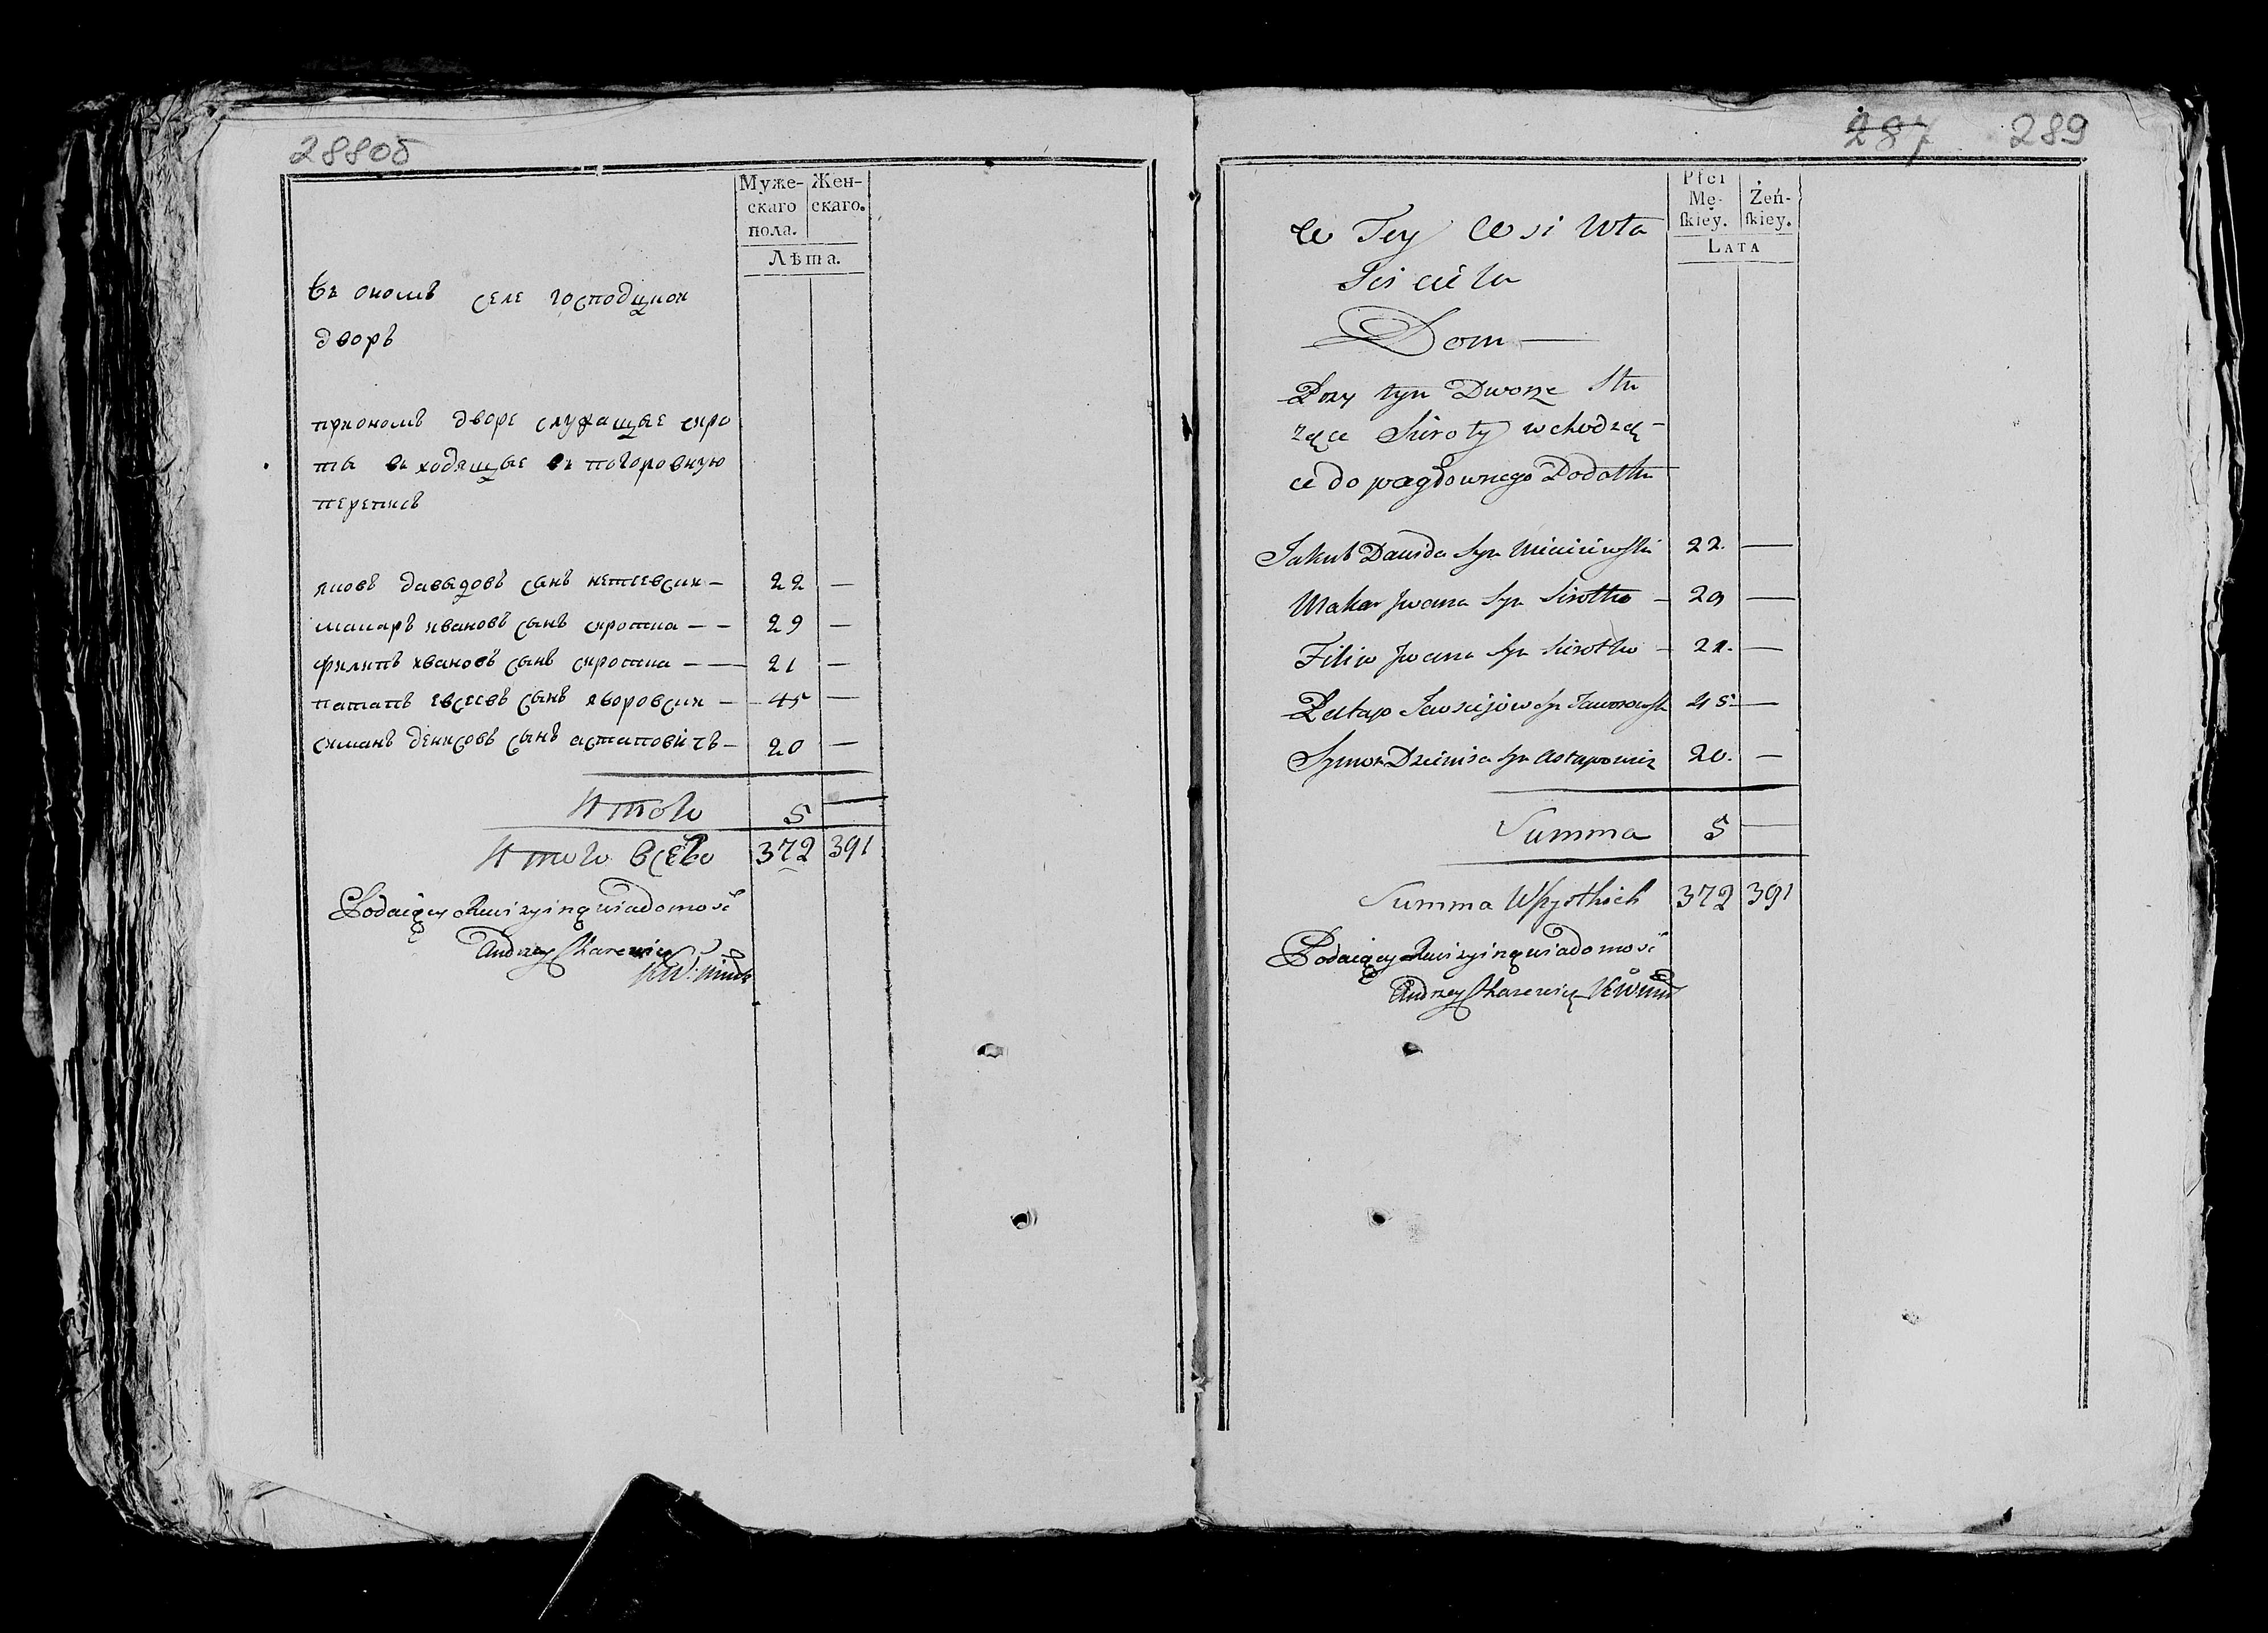 288об
Муже-
скаго
пола.
Жен-
скаго.
Лѣта.
въ ономъ селе господцкой
дворъ
приономъ дворе служащые сиро
ты въходящые въ поголовную
перепись
яковъ давыдовъ сынъ
22 —
макаръ ивановъ сынъ сиротка — —
29 —
филипъ ивановъ сынъ сиротка — —
21 —
патапъ евсеевъ сынъ яворовски —
45 —
симанъ денисовъ сынъ астаповичъ —
20 —
Итого 5 —
Итого всего 372 391
Podaiący Rewizyiną wiadomość
Andrzey
287 289
Płci
Mę-
ſkiey.
Żeń-
ſkiey.
Lata
w Tey Wsi Wła
sciciela
Dom —
Przy tym Dworze słu
żące Sieroty wchodzą-
ce do pogłownego Podatku
Jakub Dawida Syn
22. —
Makar Jwana Syn Sirotka —
29 —
Filip Jwana Syn Sirotka —
21. —
Patap Jawsiejow Syn Jaworowski
45 —
Symon Dzienisa Syn Astapowicz
20. —
Summa 5 —
Summa Wszystkich 372 391
Podaiący Rewizyiną wiadomość
Andrzey